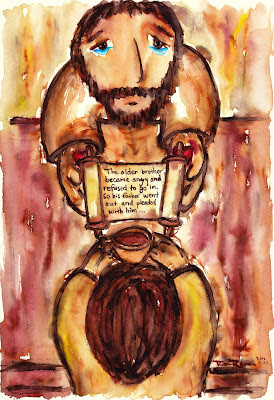 The older brother
became angry and
refused to go in.
So his father went
out and pleaded
with him ...